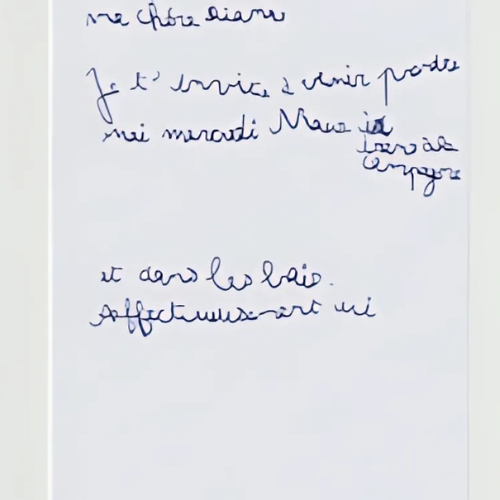 ma chère Diane
Je t'invite à venir prendre
moi mercredi Nous
irons à la
campagne
et dans les bois.
Affectueusement